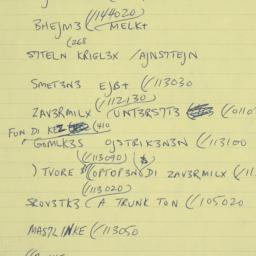 (/144020)
BHEJM3 MELK+
(268
S7TELN KRIGL3X /AJNS7TEJN
SMET3N3 EJB+ (/113030
(/112130)
ZAV3RMILX UNT3RS7T3 (/0110
FUN DI KEZ (410
GOMLK3S OJSTRIK3N3N (/113100
(/113090)
) TVORE (OPTOP3N DI ZAV3RMILX (/11
(/113020)
SROV3TK3 A TRUNK TON (/105020
MAS7LINKE (/113050